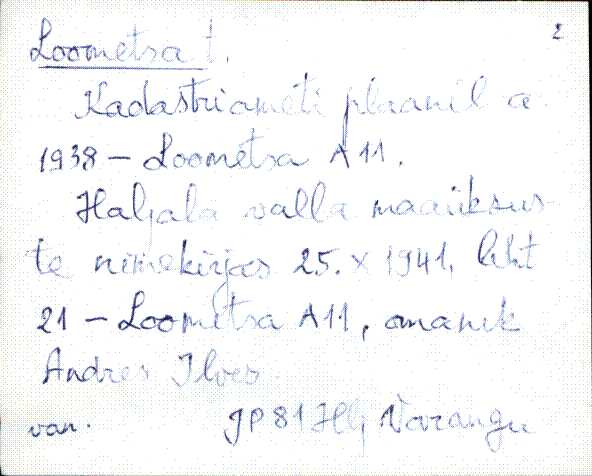 2
Loometsa t.
Kadastriameti plaanil a.
1938 – Loometsa A 11.
Haljala valla maaüksus-
te nimekirjas 25. X 1941. leht
21 – Loometsa A11, omanik
Andres Ilves
van. JP 81 Hlj Varangu